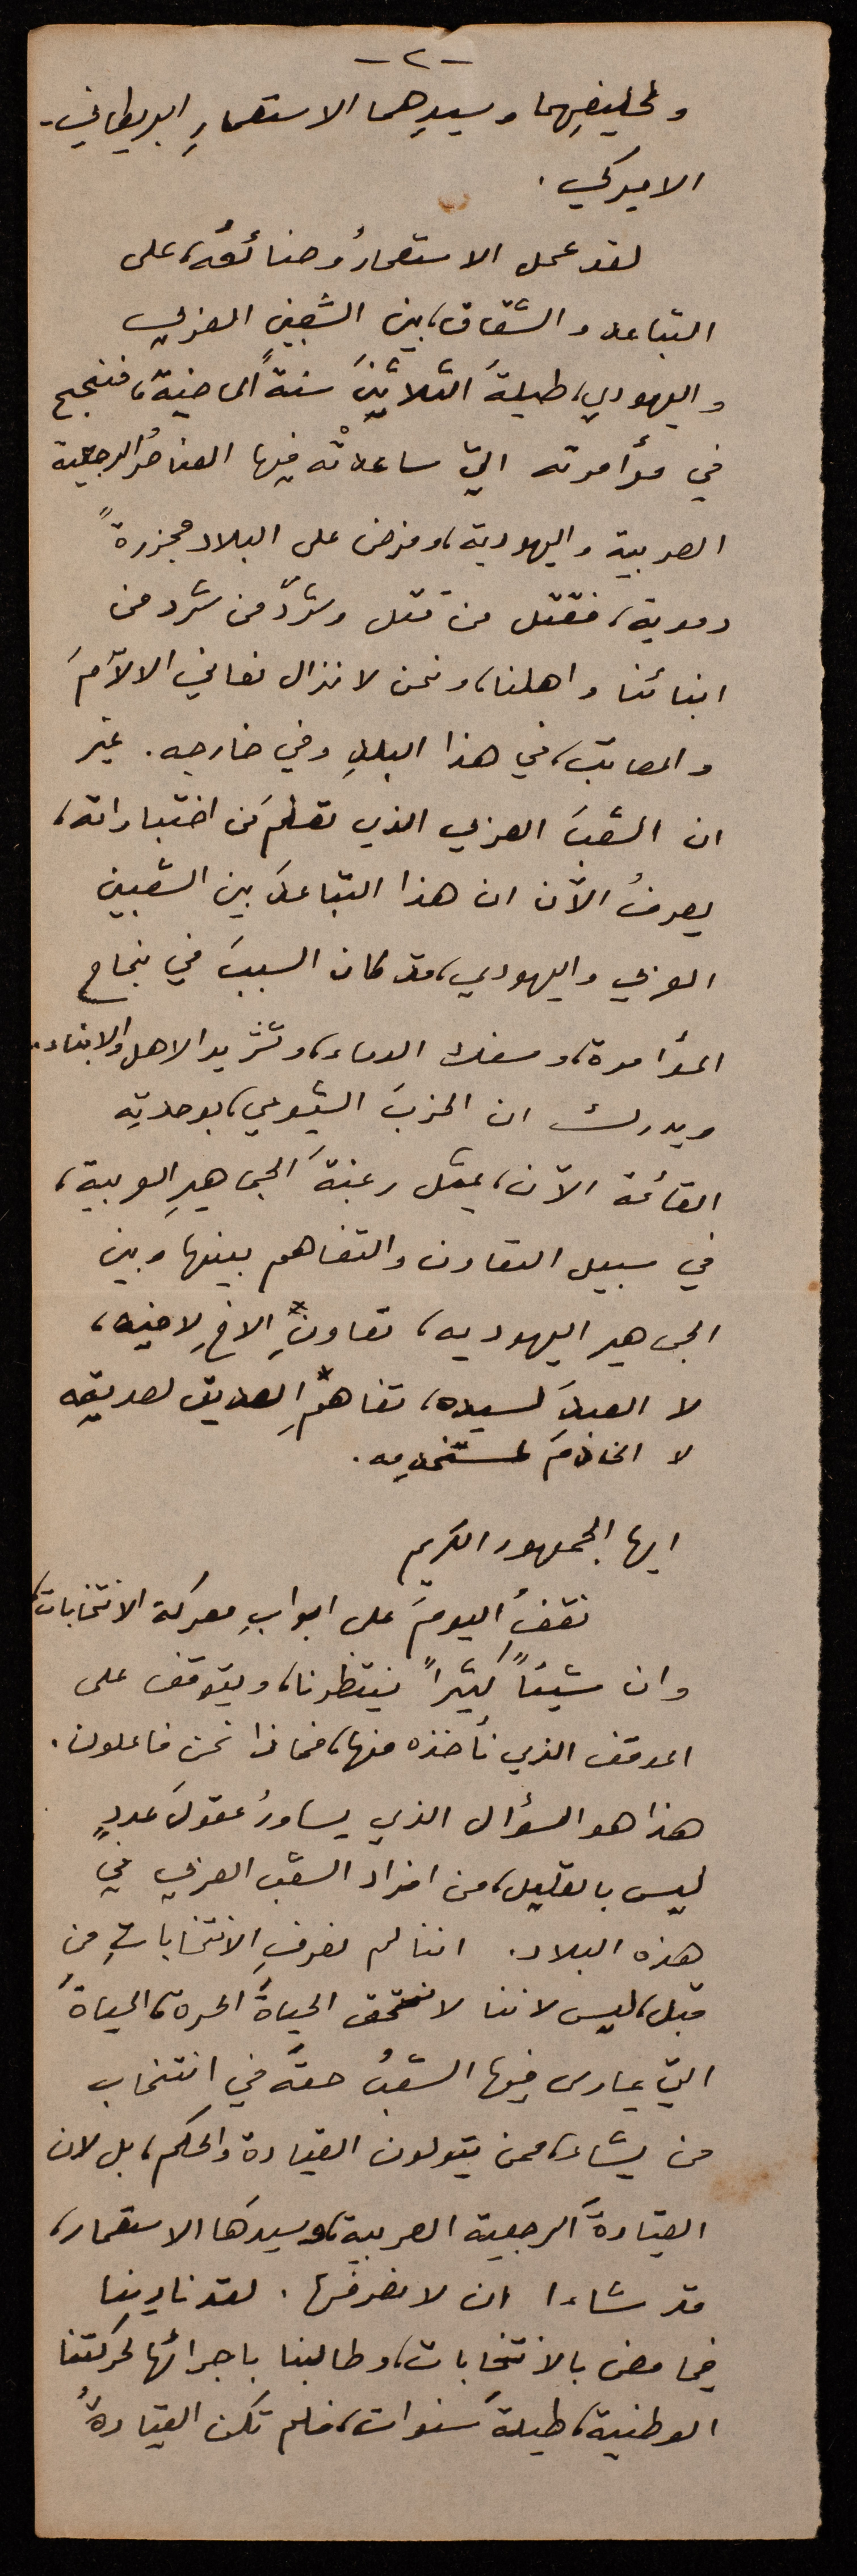 -٢-
ولحليفهما وسيدهما الاستعمارِ البريطاني-
الاميركي.
لقد عمل الاستعمارُ وصنائعُه، على
التباعد والشقاق، بين الشعبين العربي
واليهودي، طيلةَ الثلاثينَ سنةً الماضية، فنجح
في مؤامرته التي ساعدتْه فيها العناصرُ الرجعية
العربية واليهودية، وفرض على البلاد مجزرةً
دموية، فقتل من قتل وشرّد من شرد من
ابنائنا واهلنا، ونحن لا نزال نعاني الالآمَ
والمصائب، في هذا البلدِ وفي خارجه. غير
ان الشعبَ العربي الذي تعلم من اختباراته،
يعرفُ الآن ان هذا التباعدَ بين الشعبين
العربي واليهودي، قد كان السببَ في نجاح
المؤامرة، وسفك الدماء، وتشريد الاهل والابناء.
ويدرك ان الحزبَ الشيوعي، بوحدتِه
القائمة الآن، يمثل رغبةَ الجماهيرِ العربية،
في سبيل التعاون والتفاهم بينها وبين
الجماهير اليهوديه، تعاونَ الاخِ لاخيه،
لا العبدَ لسيده، تفاهمَ الصديق لصديقه
لا الخادمَ لمستخدِمه.
ايها الجمهور الكريم
نقفُ اليومَ على ابوابِ معركة الانتخابات،
وان شيئاً كثيراً ينتظرنا، ويتوقف على
الموقف الذي نأخذه منها، فماذا نحن فاعلون.
هذا هو السؤال الذي يساورُ عقولَ عددٍ
ليس بالقليل، من افراد الشعب العربي في
هذه البلاد. اننا لم نعرفِ الانتخاباتِ من
قبل، ليس لاننا لا نستحق الحياةَ الحرة، الحياةَ
التي يمارس فيها الشعبُ حقَّه في انتخاب
من يشاء، ممن يتولون القيادة والحكم، بل لان
القيادةَ الرجعية العربية، وسيدَها الاستعمار،
قد شاءا ان لا نعرفَها. لقد نادينا
فيما مضى بالانتخابات، وطالبنا باجرائها لحركتنا
الوطنية، طيلةَ سنوات، فلم تكن القيادةُ